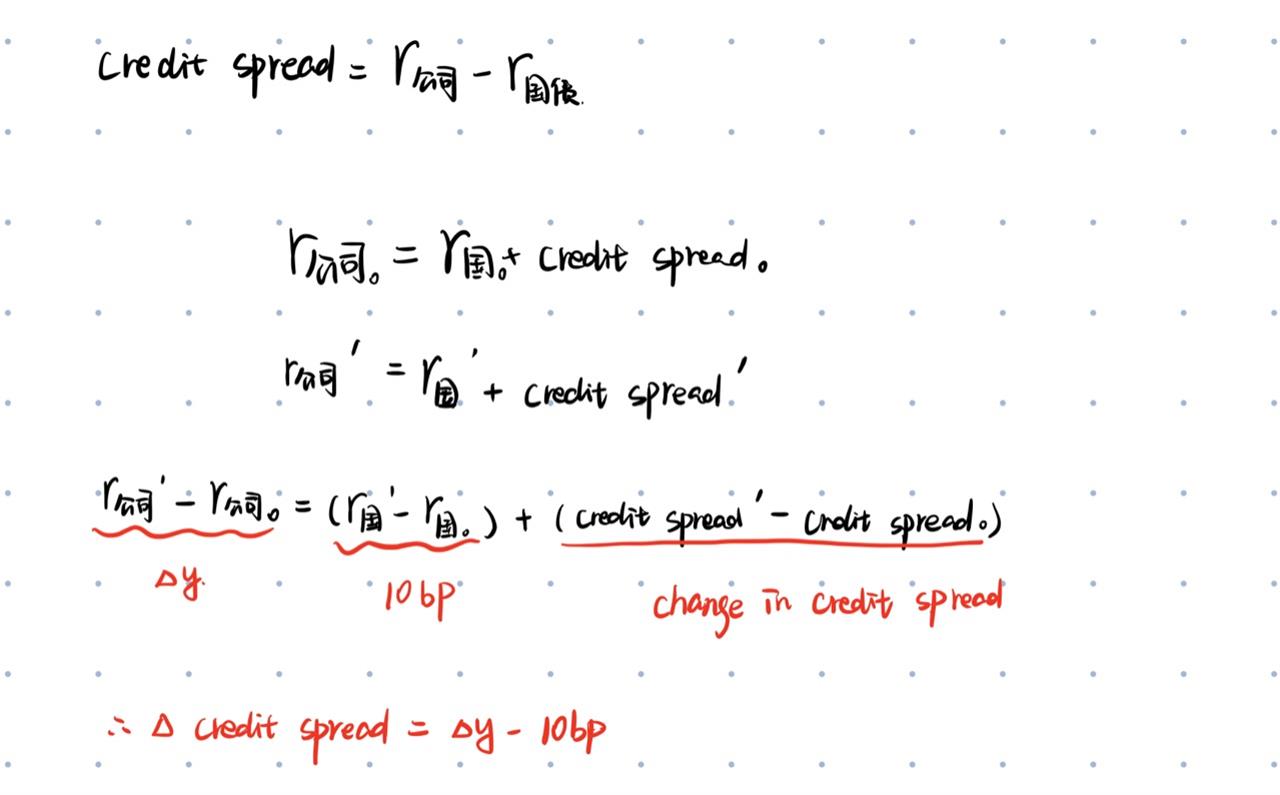 credit spread = r公司 - r国债.
r公司。 = r国。+ credit spread。
r公司' = r国' + credit spread'
r公司' - r公司。 = (r国' - r国。) + (credit spread' - credit spread。)
Δy. 10bp change in credit spread
∴ Δ credit spread = Δy - 10bp